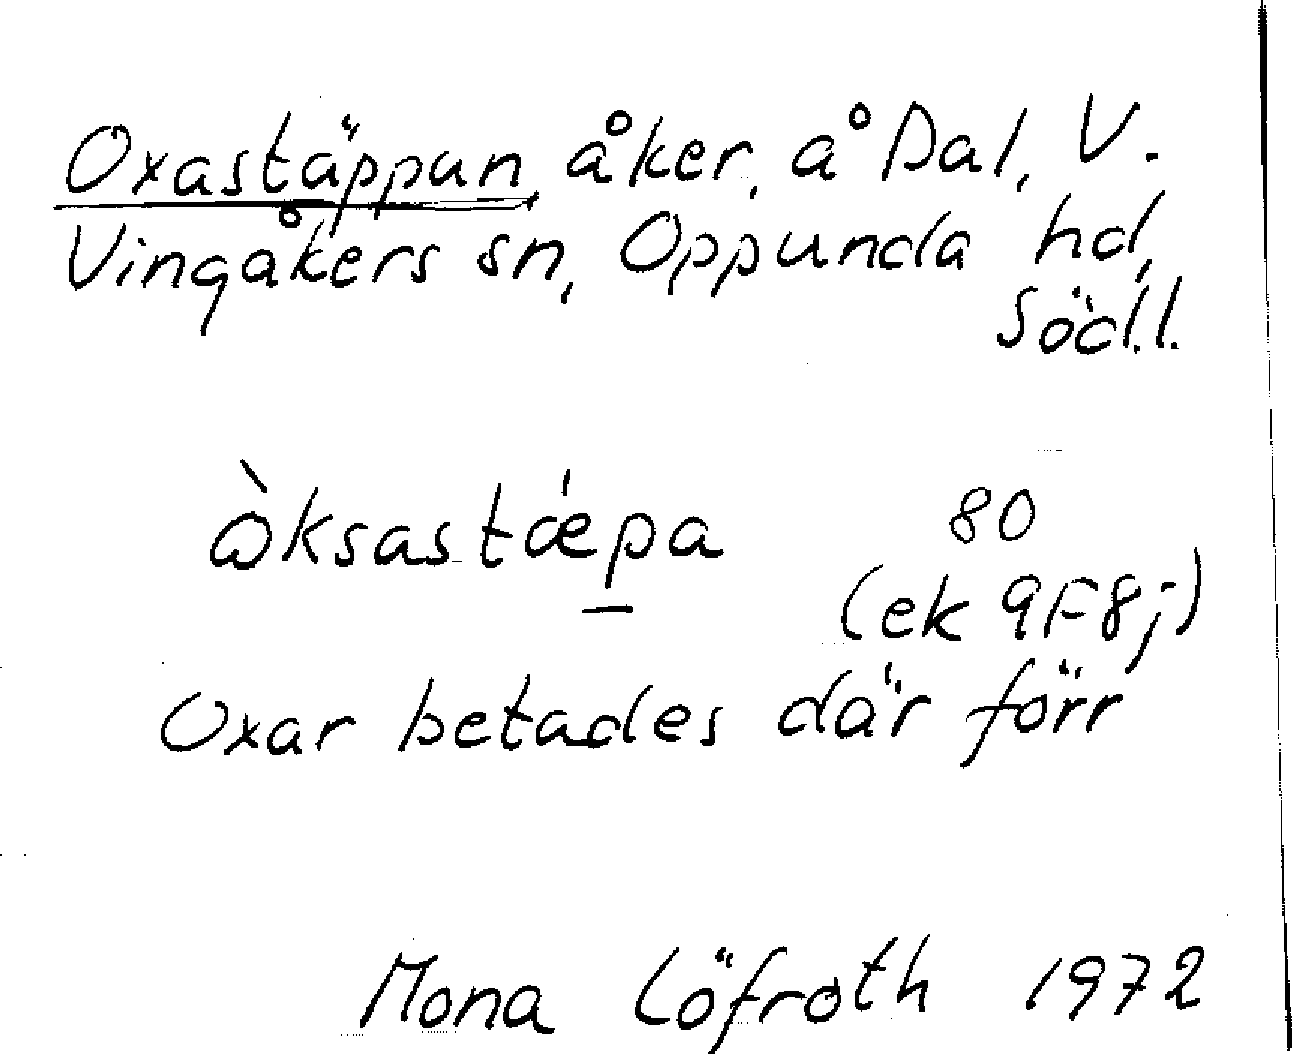 Oxastäppun, åker, å Dal, V.
Vingåkers sn, Oppunda hd,
Söd.l.
ò̀ksastǽp̲a 80
(ek 9F8j)
Oxar betades där förr
Mona Löfroth 1972